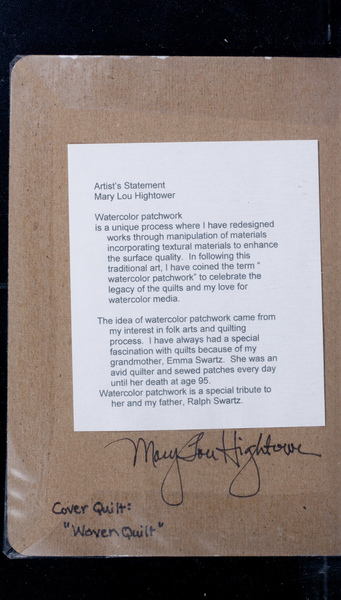 Artist's Statement
Mary Lou Hightower
Watercolor patchwork
is a unique process where I have redesigned
works through manipulation of materials
incorporating textural materials to enhance
the surface quality. In following this
traditional art, I have coined the term "
watercolor patchwork" to celebrate the
legacy of the quilts and my love for
watercolor media.
The idea of watercolor patchwork came from
my interest in folk arts and quilting
process. I have always had a special
fascination with quilts because of my
grandmother, Emma Swartz. She was an
avid quilter and sewed patches every day
until her death at age 95.
Watercolor patchwork is a special tribute to
her and my father, Ralph Swartz.
Mary Lou Hightower
Cover Quilt:
"Woven Quilt"